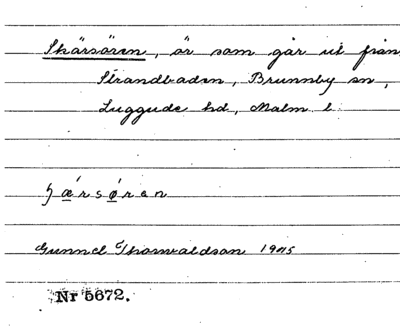 Skärsören, är som går ut från
Strandbaden, Brunnby sn,
Luggude hd, Malm. l.
ʃǽrsǿrən
Gunnel Thorwaldson 1945
Nr 5672.